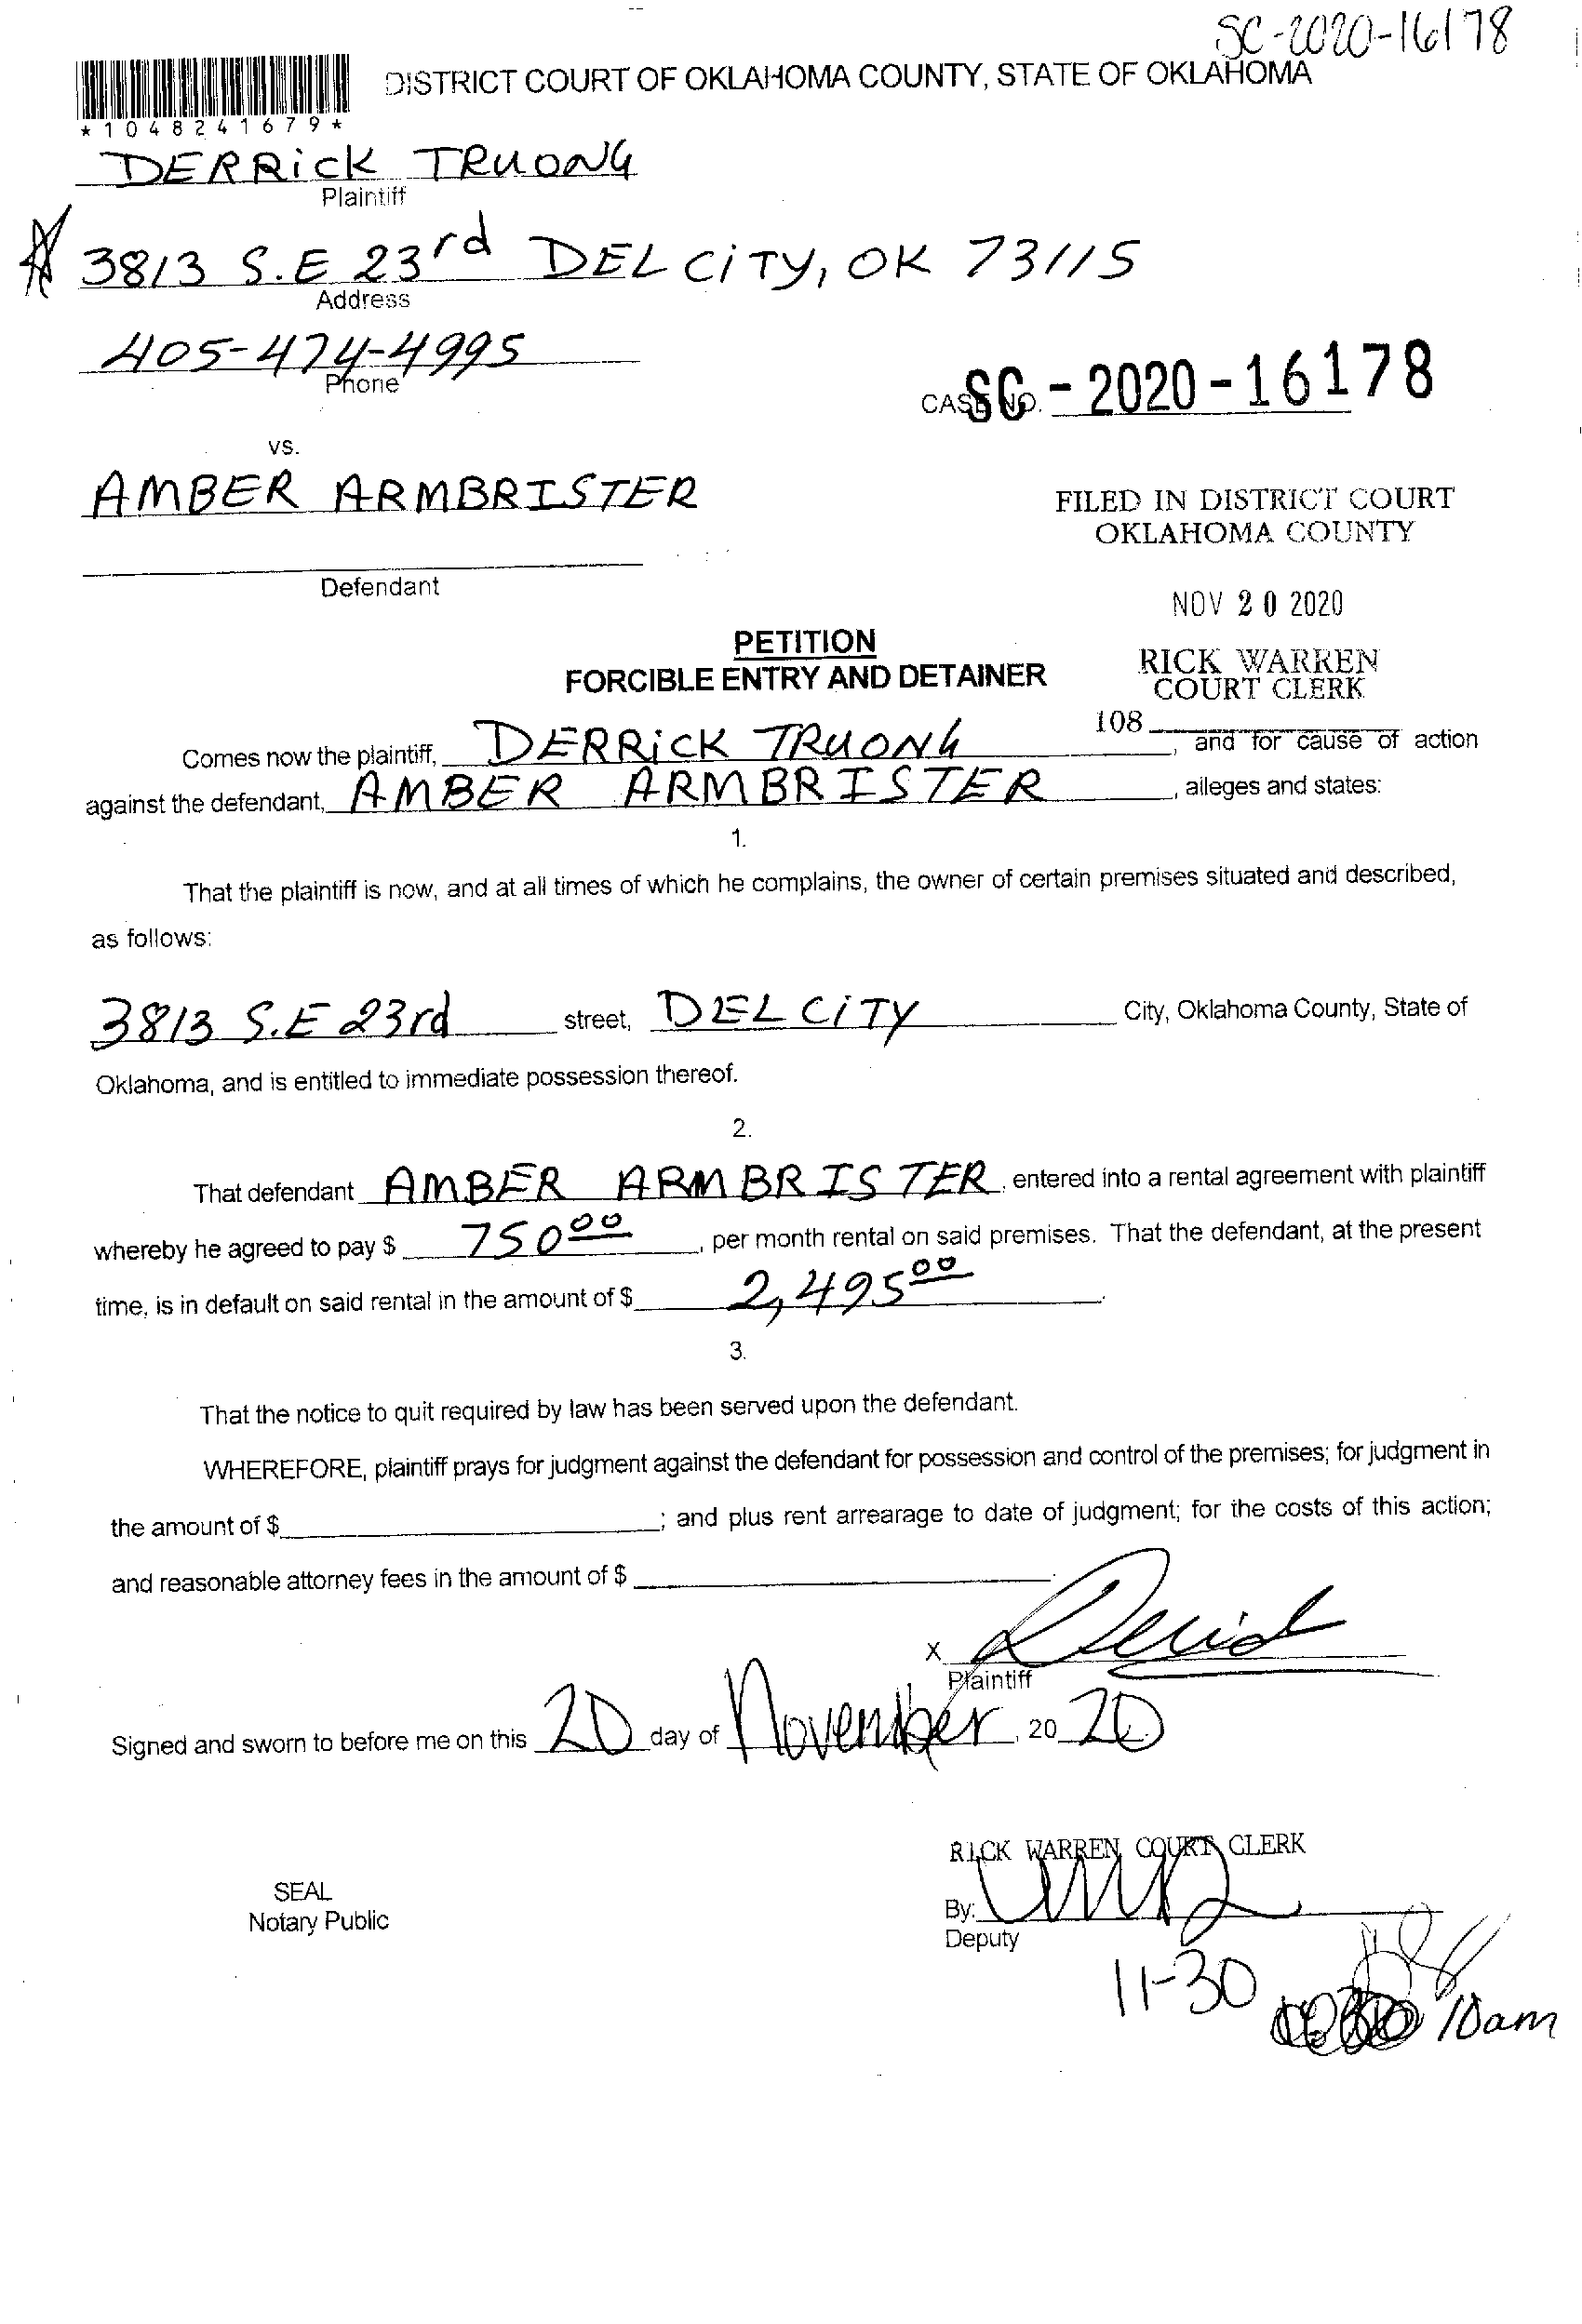 SC-2020-16178
DISTRICT COURT OF OKLAHOMA COUNTY, STATE OF OKLAHOMA
*1048241679*
DERRiCK TRUONG
Plaintiff
3813 S.E 23rd DEL CiTY, OK 73115
Address
405-474-4995
Phone
CASE NO. SC-2020-16178
vs.
AMBER ARMBRISTER
Defendant
FILED IN DISTRICT COURT
OKLAHOMA COUNTY
NOV 20 2020
PETITION
FORCIBLE ENTRY AND DETAINER
RICK WARREN
COURT CLERK
108
Comes now the plaintiff, DERRiCK TRUONG, and for cause of action
against the defendant, AMBER ARMBRISTER, alleges and states:
1.
That the plaintiff is now, and at all times of which he complains, the owner of certain premises situated and described,
as follows:
3813 S.E 23rd street, DEL CiTY City, Oklahoma County, State of
Oklahoma, and is entitled to immediate possession thereof.
2.
That defendant AMBER ARMBRISTER, entered into a rental agreement with plaintiff
whereby he agreed to pay $ 750 00, per month rental on said premises. That the defendant, at the present
time, is in default on said rental in the amount of $ 2,495 00.
3.
That the notice to quit required by law has been served upon the defendant.
WHEREFORE, plaintiff prays for judgment against the defendant for possession and control of the premises; for judgment in
the amount of $ ; and plus rent arrearage to date of judgment; for the costs of this action;
and reasonable attorney fees in the amount of $ .
X
Plaintiff
Signed and sworn to before me on this 20 day of November, 20 20
RICK WARREN COURT CLERK
SEAL
Notary Public
By:
Deputy
11-30 10am